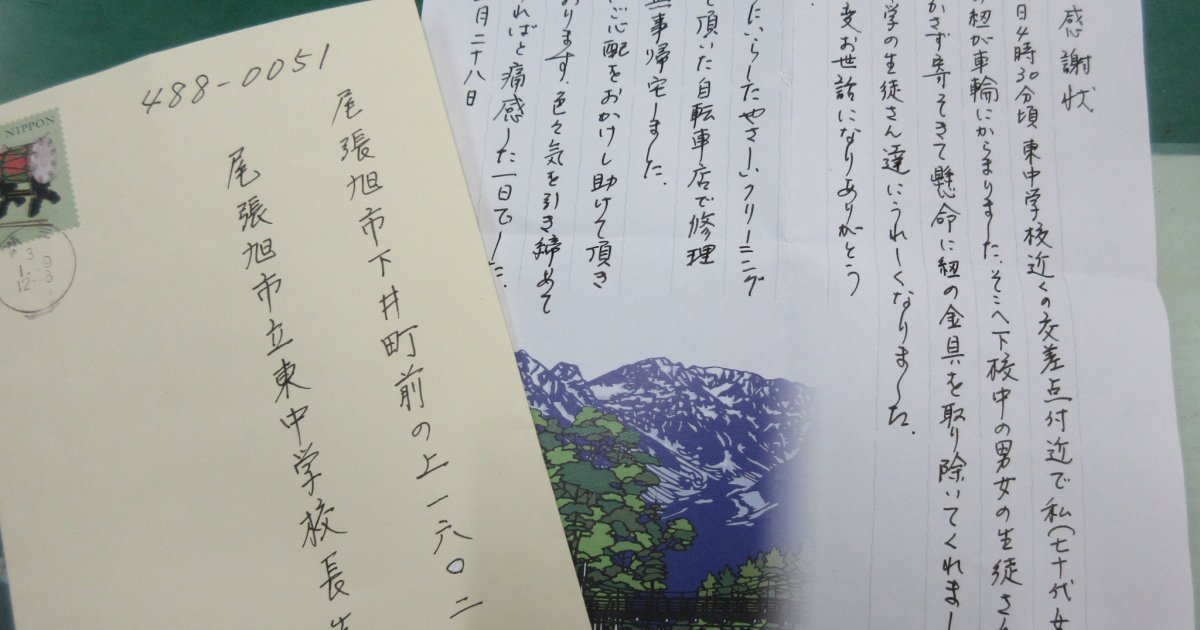 NIPPON
488-0051
尾張旭市下井町前の上一六〇二
尾張旭市立東中学校長
感謝状
日4時30分頃 東中学校近くの交差点付近で私(七十代女
の紐が車輪にからまりました。そこへ下校中の男女の生徒さん
かさず寄そきて懸命に紐の金具を取り除いてくれまし
学の生徒さん達にうれしくなりました。
変お世話になりありがとう
た。
にいらしたやさしいクリーニング
て頂いた自転車店で修理
無事帰宅しました。
ご心配をおかけし助けて頂き
おります。色々気を引き締めて
ればと痛感した一日でした。
月二十八日